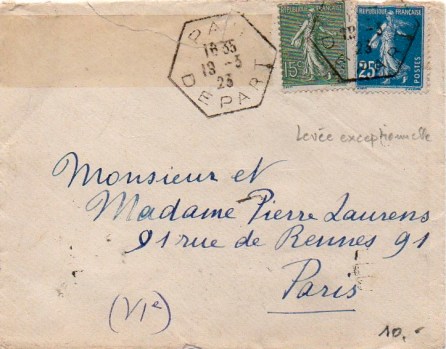 PARIS
18 35
19 -3
23
DEPART
REPUBLIQUE FRANÇAISE
15c
REPUBLIQUE FRANÇAISE
25c
POSTES
Levée exceptionnelle
Monsieur et
Madame Pierre Laurens
91 rue de Rennes 91
Paris
(VIe)
10,-